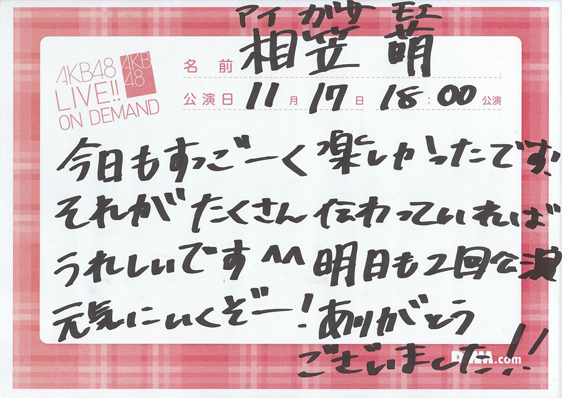 アイ ガサ モエ
名前 相笠 萌
AKB48
LIVE!!
ON DEMAND
AKB
48
公演日 11月17日 18:00公演
今日もすっごーく楽しかったです!
それがたくさん伝わっていれば
うれしいです^^明日も2回公演
元気にいくぞー!ありがとう
ございました!!
DMM.com